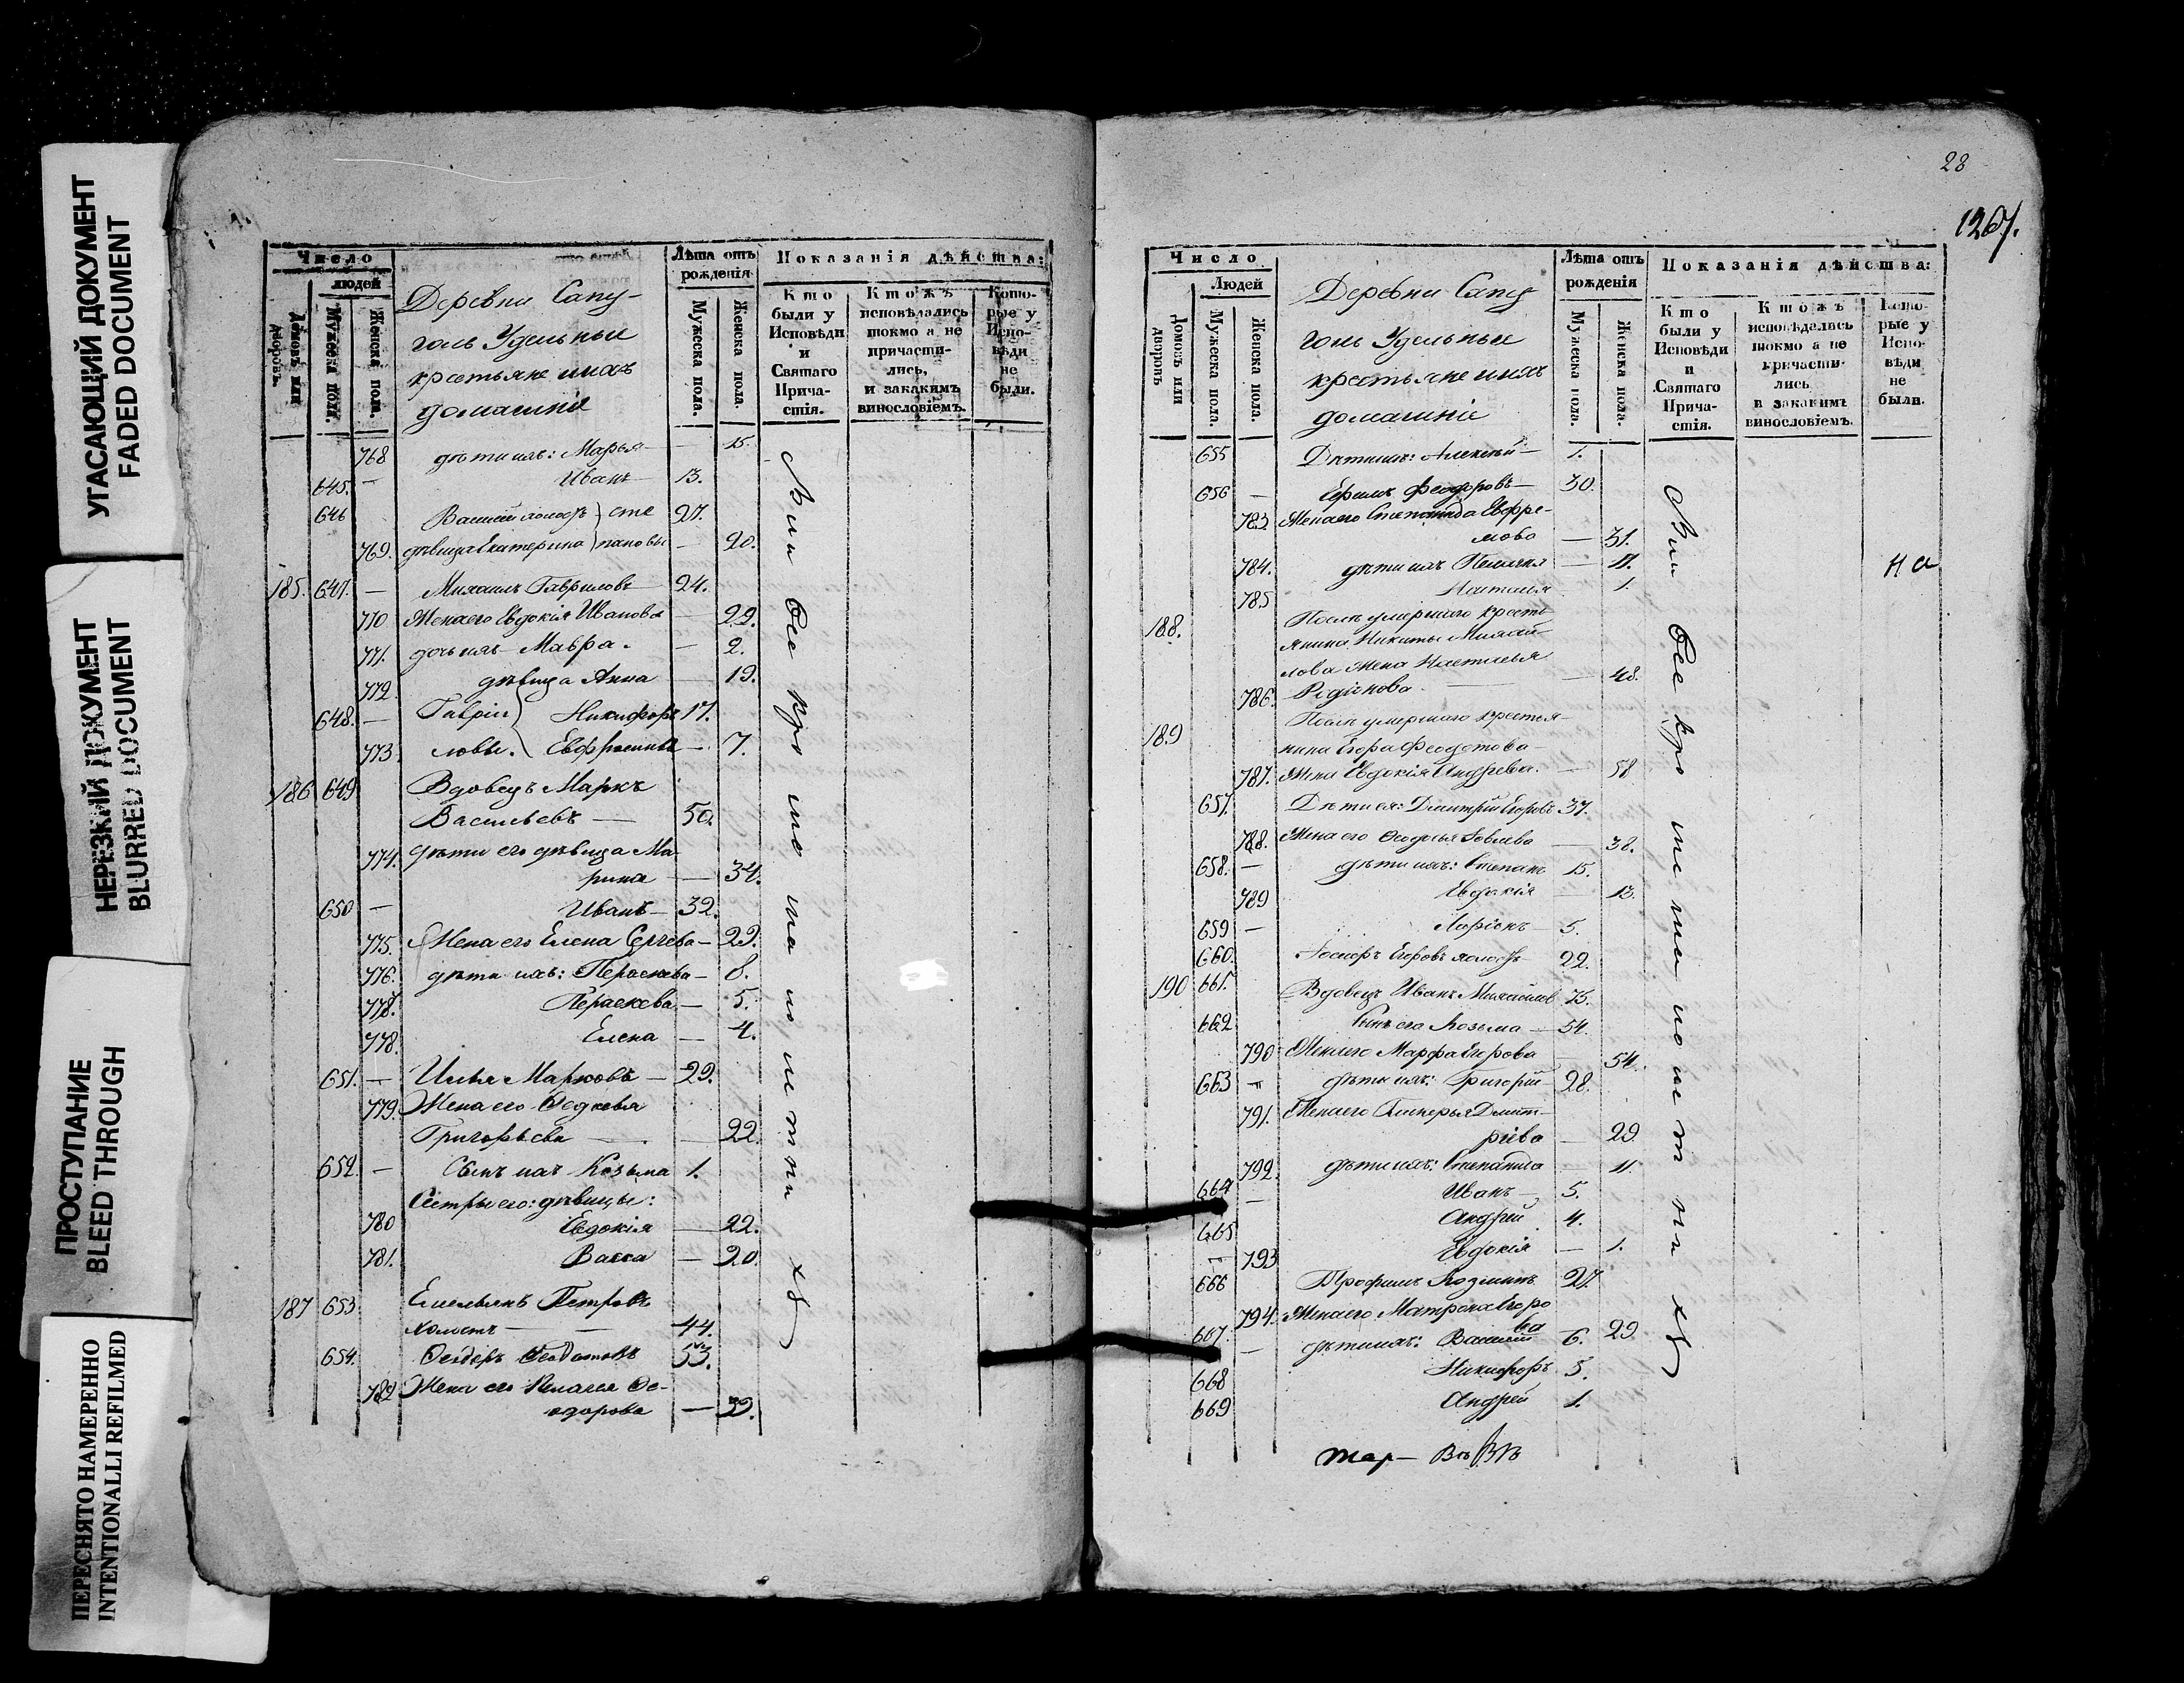 УГАСАЮЩИЙ ДОКУМЕНТ
FADED DOCUMENT
НЕРЕЗКИЙ ДОКУМЕНТ
BLURRED DOCUMENT
ПРОСТУПАНИЕ
BLEED THROUGH
ПЕРЕСНЯТО НАМЕРЕННО
INTENTIONALLI REFILMED
Число
людей
Домовъ или дворовъ.
Мужеска пола.
Женска пола.
Деревни Сапу-
голь Удельные
крестьяне ихъ
домашніе
Лѣта отъ рожденія
Мужеска пола.
Женска пола.
Показанія дѣйства:
Кто были у Исповѣди и Святаго Причастія.
Ктожъ исповѣдались токмо а не причастились, и закакимъ винословіемъ.
Которые у Исповѣди не были.
768 дѣти ихъ: Марья — 15.
645. — Иванъ — 13.
646 Василій холостъ } Сте 27.
769. дѣвица Екатерина } пановы — 20.
185. 647. — Михаилъ Гавриловъ 24.
770 Жена его Евдокія Иванова — 22.
771. дочь ихъ Мавра. — 2.
772. дѣвица Анна — 19.
648. — Гаврии } Никифоръ 17.
773 ловы. } Евфросинья — 7.
186 649 Вдовецъ Маркъ
Васильевъ — 50.
774. дѣти его дѣвица Ма
рина — 34.
650 — Иванъ — 32.
775. Жена его Елена Сергѣева — 29.
776. дѣти ихъ: Пераскева — 8.
778. Пераскева — 5.
778. Елена — 4.
651. — Илья Марковъ — 29.
779. Жена его Федосья
Григорьева — 22.
652. — Сынъ ихъ Козьма 1.
Сестры его: дѣвицы:
780 Евдокія — 22.
781. Васса — 20.
187 653. Емельянъ Петровъ
холостъ — 44.
654. Феодоръ Феодотовъ 53.
782 Жена его Пелагея Фе-
одорова — 59.
28
1267.
Число
Людей
Домовъ или дворовъ
Мужеска пола.
Женска пола.
Деревни Сапу
голь Удельные
крестьяне ихъ
домашніе
Лѣта отъ рожденія
Мужеска пола.
Женска пола.
Показанія дѣйства:
Кто были у Исповѣди и Святаго Причастія.
Ктожъ исповѣдались токмо а не причастились и закакимъ винословіемъ.
Которые у Исповѣди не были.
655 Дѣти ихъ: Алексѣй — 1.
656 — Ефимъ Феодоровъ — 30.
783. Жена его Степанида Ефре-
мова — 31.
784. дѣти ихъ Пелагея — 11.
785 Наталья 1.
188. Послѣ умершаго кресть
янина Никиты Михай
лова жена Настасья
786. Родіонова — 48.
189 Послѣ умершаго крестья-
нина Егора Феодотова
787. Жена Евдокія Андреева. — 58
657. Дѣти ея: Дмитрій Егоровъ 37.
788. Жена его Федосья — 38.
658. — дѣти ихъ: Степанъ 15.
789 Евдокія — 13.
659 — Ларіонъ — 5.
660. Егоровъ холостъ 22.
190 661. Вдовецъ Иванъ Михайловъ 75.
662 Сынъ его Козьма — 54.
790 Жена его Марфа Егорова — 54.
663 — дѣти ихъ: Григорій — 28.
791. Жена его Гликерья Дмит-
ріева — 29.
792. дѣти ихъ: Степанида — 11.
664 — Иванъ 5.
665 Андрей 4.
793 Евдокія — 1.
666 Трофимъ Козминъ 27.
794. Жена его Матрона Егоро
ва 29.
667. — дѣти ихъ: Василій 6.
668 Никифоръ 3.
669 Андрей 1.